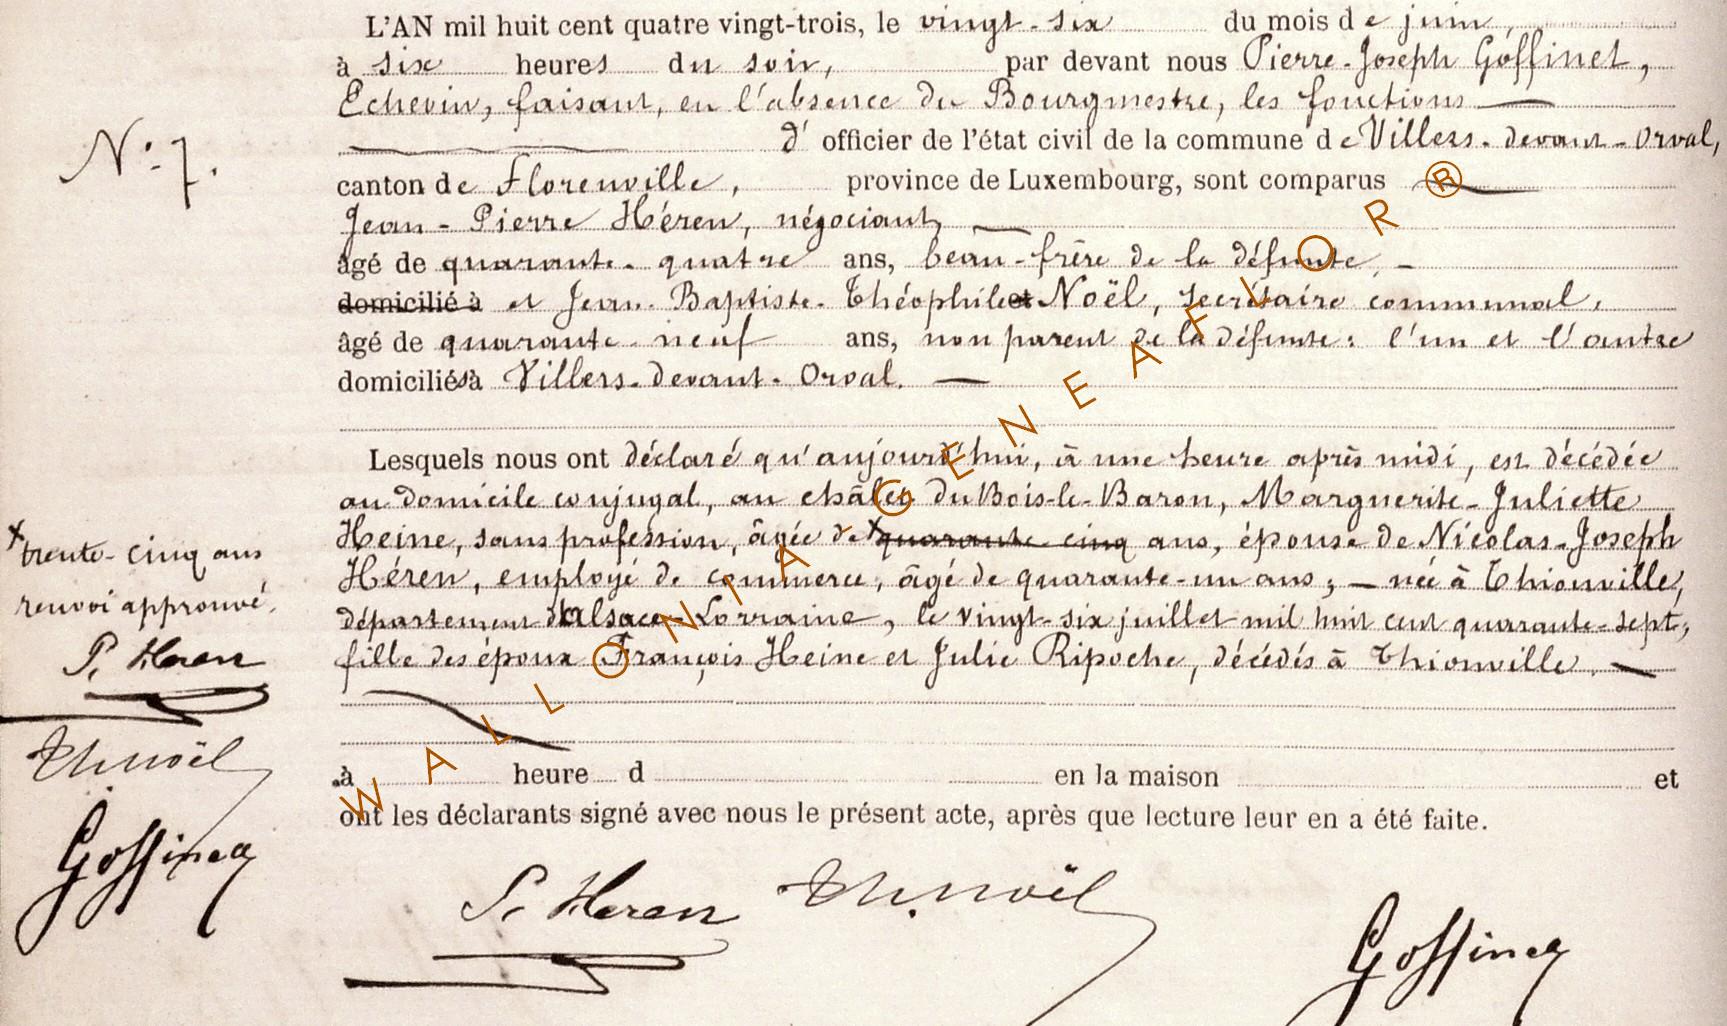 L'AN mil huit cent quatre vingt-trois, le vingt-six du mois de juin,
à six heures du soir, par devant nous Pierre-Joseph Goffinet,
Echevin, faisant, en l'absence du Bourgmestre, les fonctions
d' officier de l'état civil de la commune de Villers-devant-Orval,
N° 7.
canton de Florenville, province de Luxembourg, sont comparus
Jean-Pierre Héren, négociant,
âgé de quarante-quatre ans, beau-frère de la défunte,
domicilié à et Jean-Baptiste-Théophile et Noël, secrétaire communal,
âgé de quarante-neuf ans, non parent de la défunte: l'un et l'autre
domiciliés à Villers-devant-Orval.
Lesquels nous ont déclaré qu'aujourd'hui, à une heure après midi, est décédée
au domicile conjugal, au châlet du Bois-le-Baron, Marguerite-Juliette
Heine, sans profession, âgée de x quarante-cinq ans, épouse de Nicolas-Joseph
Héren, employé de commerce, âgé de quarante-un ans; née à Thionville,
département d'Alsace-Lorraine, le vingt-six juillet mil huit cent quarante-sept;
fille des époux François Heine et Julie Ripoche, décédés à Thionville.
x trente-cinq ans
renvoi approuvé.
P. Heren
Th. Noël
Goffinet
à heure d en la maison et
ont les déclarants signé avec nous le présent acte, après que lecture leur en a été faite.
P. Heren Th. Noël Goffinet
WALLONIA-GENEAFLOR®